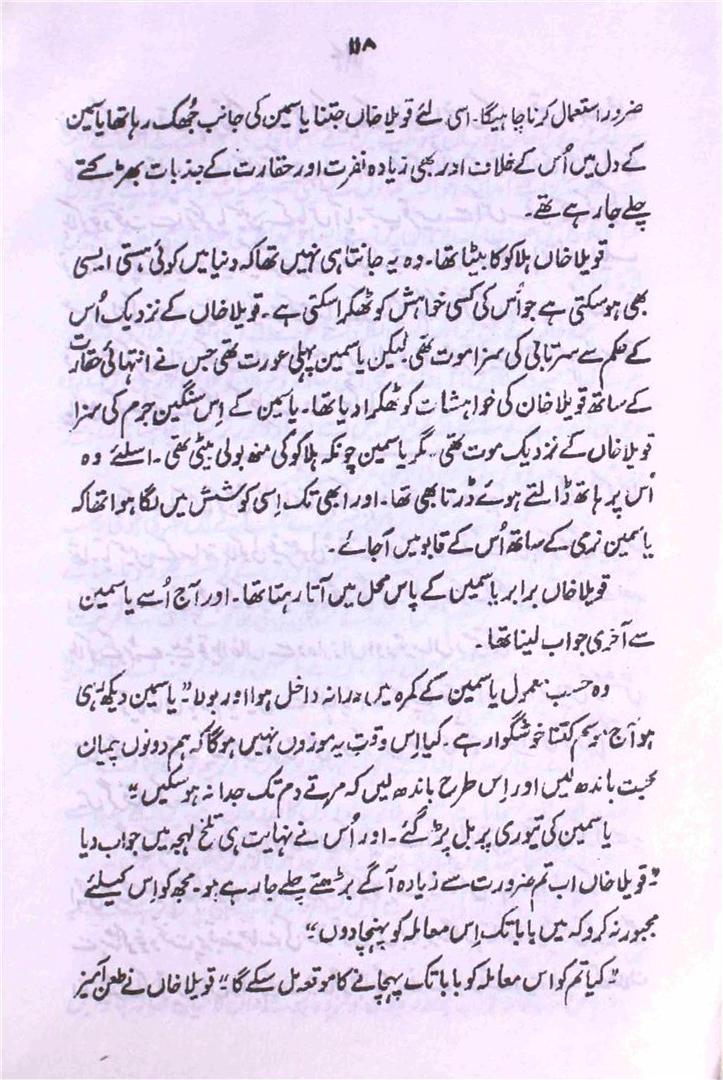 ۱۱۸
ضرور استعمال کرنا چاہیگا۔ اسی لئے قویلا خاں جتنا یاسمین کی جانب جُھک رہا تھا یاسمین
کے دل میں اُس کے خلاف اور بھی زیادہ نفرت اور حقارت کے جذبات بھڑکتے
چلے جا رہے تھے۔
قویلا خاں ہلاکو کا بیٹا تھا۔ وہ یہ جانتا ہی نہیں تھا کہ دنیا میں کوئی ہستی ایسی
بھی ہو سکتی ہے جو اُس کی کسی خواہش کو ٹھکرا سکتی ہے۔ قویلا خاں کے نزدیک اُس
کے حکم سے سرتابی کی سزا موت تھی لیکن یاسمین پہلی عورت تھی جس نے انتہائی حقارت
کے ساتھ قویلا خان کی خواہشات کو ٹھکرا دیا تھا۔ یاسمین کے اِس سنگین جرم کی سزا
قویلا خاں کے نزدیک موت تھی۔ مگر یاسمین چونکہ ہلاکو کی منھ بولی بیٹی تھی۔ اسلئے وہ
اُس پر ہاتھ ڈالتے ہوئے ڈرتا بھی تھا۔ اور ابھی تک اِسی کوشش میں لگا ہوا تھا کہ
یاسمین نرمی کے ساتھ اُس کے قابو میں آجائے۔
قویلا خاں برابر یاسمین کے پاس محل میں آتا رہتا تھا۔ اور آج اُسے یاسمین
سے آخری جواب لینا تھا۔
وہ حسب معمول یاسمین کے کمرہ میں درانہ داخل ہوا اور بولا "یاسمین دیکھتی ہی
ہو آج موسم کتنا خوشگوار ہے۔ کیا اِس وقت یہ موزوں نہیں ہوگا کہ ہم دونوں پیمان
محبت باندھ لیں اور اِس طرح باندھ لیں کہ مرتے دم تک جدا نہ ہو سکیں"
یاسمین کی تیوری پر بل پڑ گئے۔ اور اُس نے نہایت ہی تلخ لہجہ میں جواب دیا
"قویلا خاں اب تم ضرورت سے زیادہ آگے بڑھتے چلے جا رہے ہو۔ مجھ کو اِس کیلئے
مجبور نہ کرو کہ میں بابا تک اِس معاملہ کو پہنچا دوں"
"کیا تم کو اس معاملہ کو بابا تک پہچانے کا موقعہ مل سکے گا" قویلا خاں نے طعن آمیز